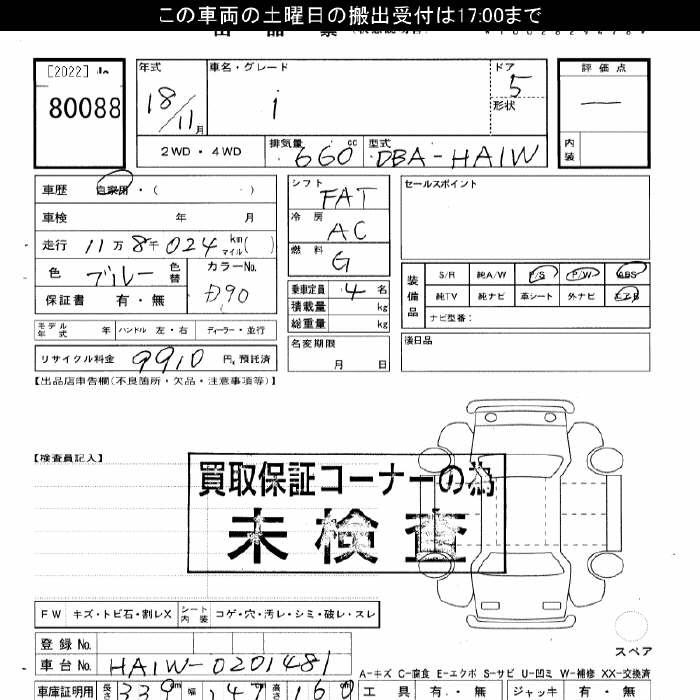 この車両の土曜日の搬出受付は17:00まで
[2022]
80088
年式
18/11月
車名・グレード
i
ドア
5
形状
評価点
—
内装
2WD・4WD
排気量 660 cc
型式 DBA-HA1W
車歴 自家用・( )
車検 年 月
走行 11万8千024 km マイル( )
色 ブルー 色替
カラーNo. D90
保証書 有・無
モデル年式 年 ハンドル 左・右 ディーラー・並行
リサイクル料金 9910 円。預託済
シフト FAT
冷房 AC
燃料 G
乗車定員 4 名
積載量 kg
総重量 kg
名変期限
月 日
セールスポイント
装備品
S/R 純A/W P/S P/W ABS
純TV 純ナビ 革シート 外ナビ エアB
ナビ型番:
後日品
【出品店申告欄(不良箇所・欠品・注意事項等)】
【検査員記入】
買取保証コーナーの為
未検査
FW キズ・トビ石・割レX シート内装 コゲ・穴・汚レ・シミ・破レ・スレ
スペア
登録No.
車台No. HA1W-0201481
A-キズ C-腐食 E-エクボ S-サビ U-凹ミ W-補修 XX-交換済
車庫証明用 長さ 339 幅 147 高さ 160
工具 有・無 ジャッキ 有・無